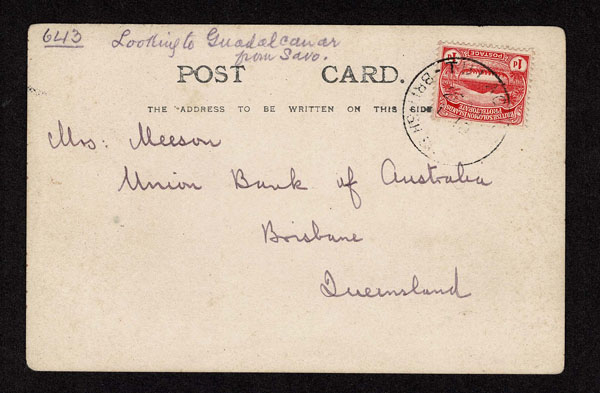 643
Looking to Guadalcanar
from Savo.
POST CARD.
THE ADDRESS TO BE WRITTEN ON THIS SIDE
1d 1d
POSTAGE
BRITISH SOLOMON ISLANDS
PROTECTORATE
Mrs: Meeson
Union Bank of Australia
Brisbane
Queensland